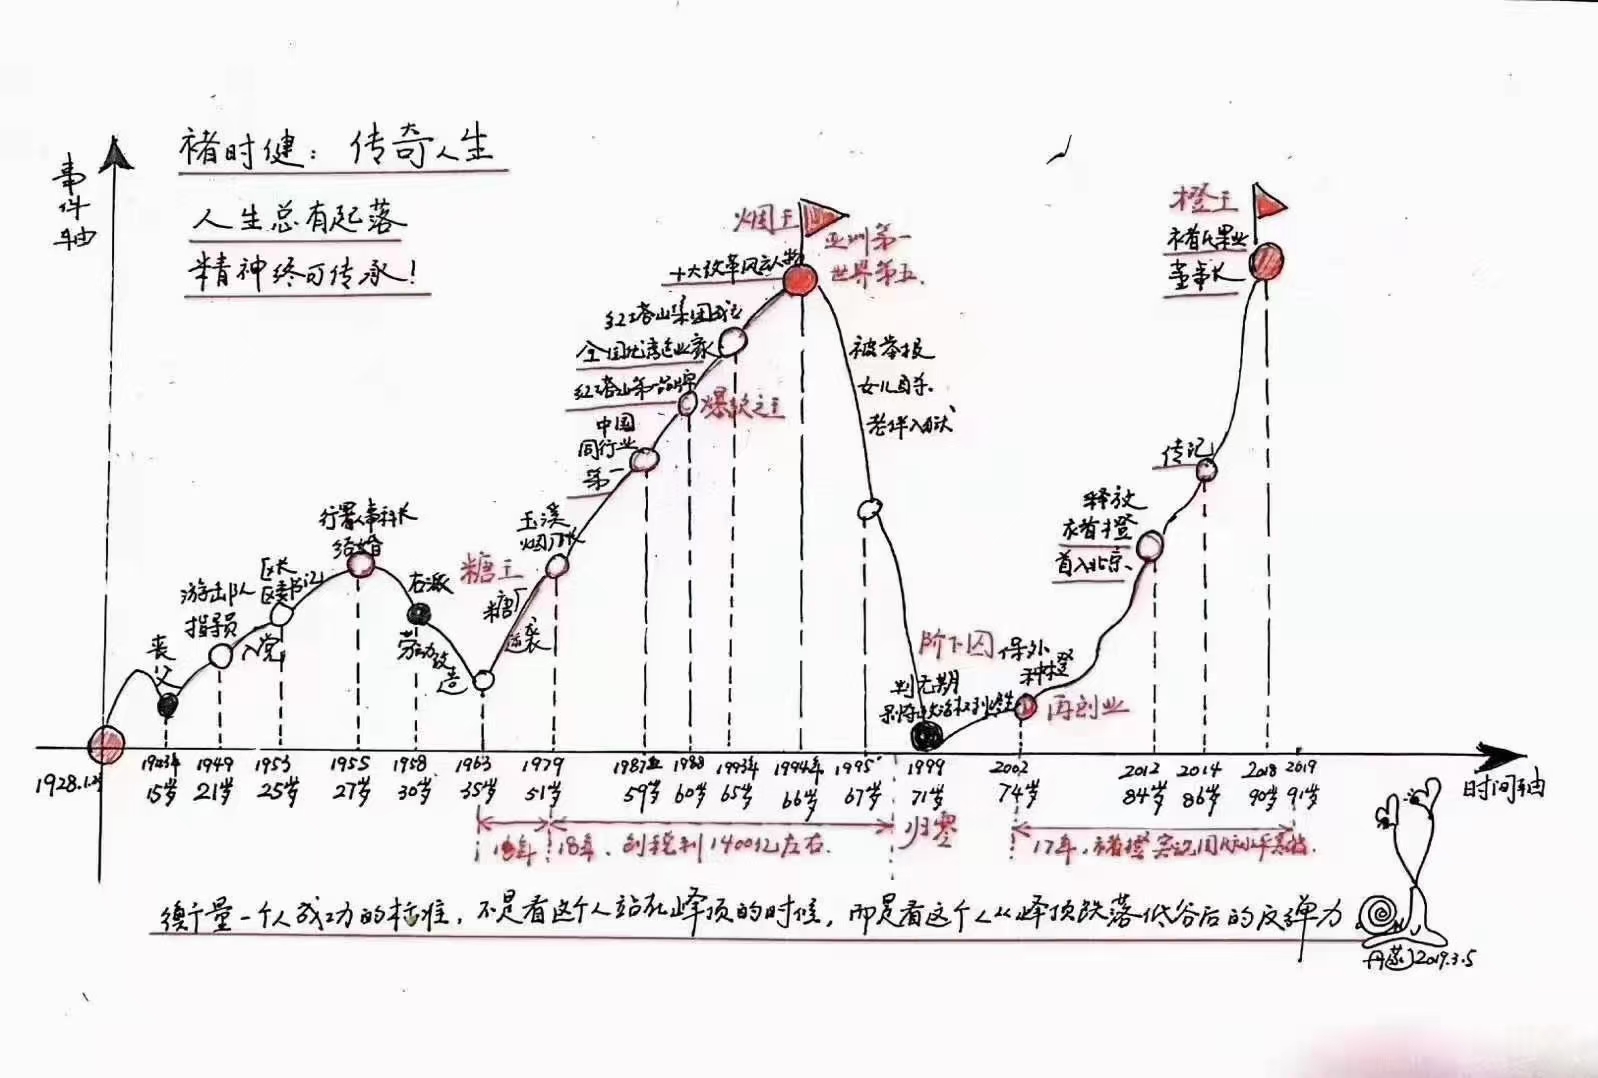 褚时健：传奇人生
人生总有起落
精神终可传承！
事件轴
丧父
游击队
指导员
入党
区长
区委书记
行署人事科长
结婚
右派
劳动改造
糖王
糖厂
逆袭
玉溪
烟厂长
中国
同行业
第一
红塔山第一品牌
爆款之王
红塔山集团成立
全国优秀企业家
十大改革风云人物
烟王
亚洲第一
世界第五.
被举报
女儿自杀.
老伴入狱
阶下囚
判无期
剥夺政治权利终生
保外
种橙
再创业
释放
褚橙
首入北京.
传记
橙王
褚氏果业
董事长
1928.1.23
1943年
15岁
1949
21岁
1953
25岁
1955
27岁
1958
30岁
1963
35岁
1979
51岁
1987年
59岁
1988
60岁
1993年
65岁
1994年
66岁
1995
67岁
1999
71岁
2002
74岁
2012
84岁
2014
86岁
2018
90岁
2019
91岁
时间轴
18年，创税利1400亿左右.
归零
17年，褚橙
衡量一个人成功的标准，不是看这个人站在峰顶的时候，而是看这个人从峰顶跌落低谷后的反弹力
2019.3.5